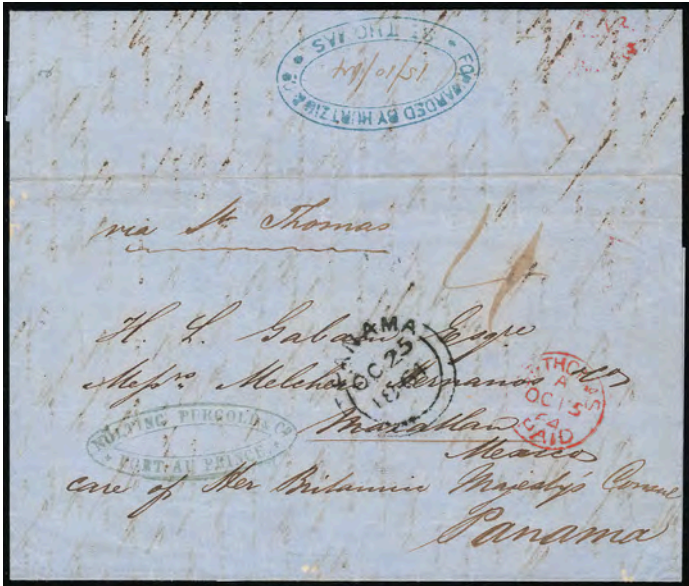 FORWARDED BY HURTZIG & Co
ST THOMAS
15/10/64
via St Thomas
4
H. L. Esqre
Messrs Melchers Hermanos
Mazatlan
Mexico
care of Her Britannic Majesty's Consul
Panama
PANAMA
OC 25
1864
ST THOMAS
A
OC 15
64
PAID
NOLTING PURGOLD & Co
PORT-AU PRINCE